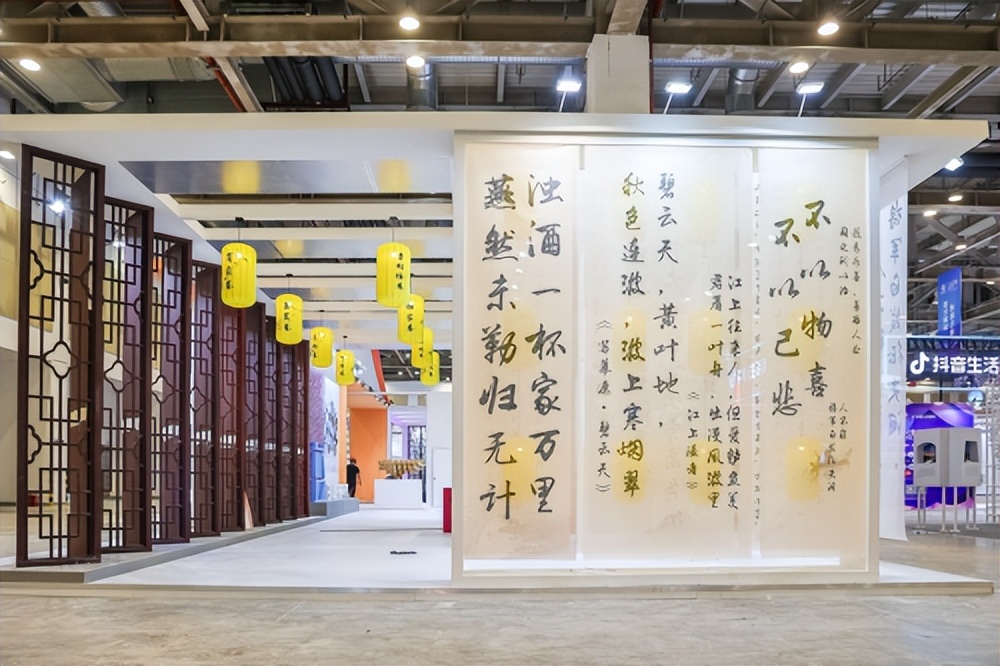 不以物喜
不以己悲
人不寐
将军白发征夫泪
江上往来人,但爱鲈鱼美
君看一叶舟,出没风波里
《江上渔者》
碧云天,黄叶地,
秋色连波,波上寒烟翠
《苏幕遮·碧云天》
浊酒一杯家万里
燕然未勒归无计
将军白发征夫泪
抖音生活